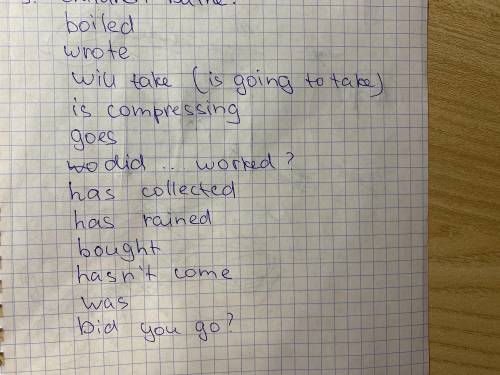 children
boiled
wrote
will take (is going to take)
is compressing
goes
did ... worked?
has collected
has rained
bought
hasn't come
was
bid you go?